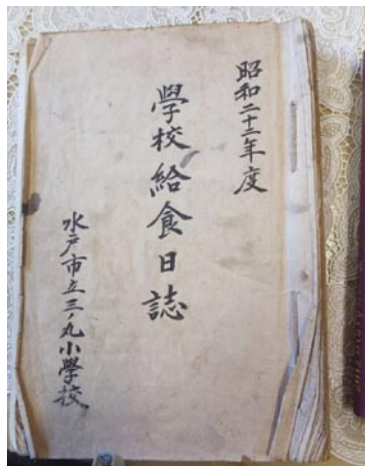 昭和二十二年度
學校給食日誌
水戸市立三ノ丸小學校